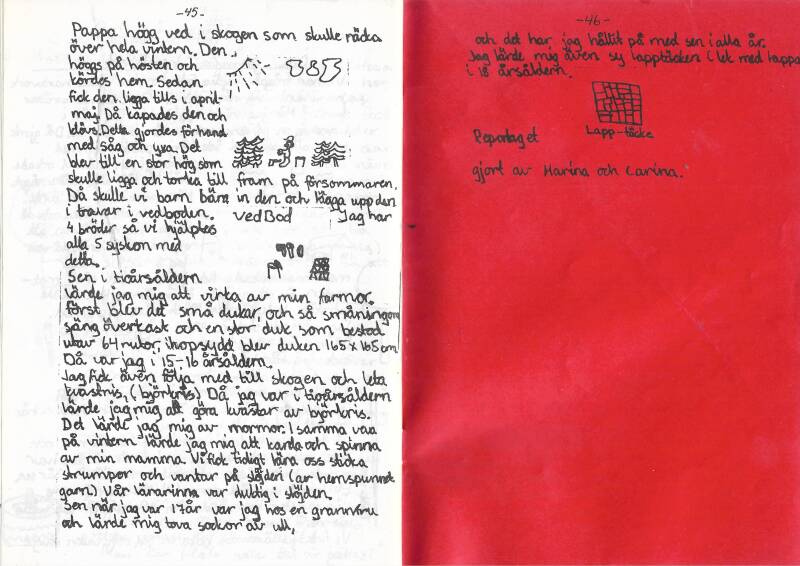 -45-
Pappa högg ved i skogen som skulle räcka
över hela vintern. Den
höggs på hösten och
kördes hem. Sedan
fick den ligga tills i april-
maj. Då kapades den och
klövs. Detta gjordes för hand
med såg och yxa. Det
blev till en stor hög som
skulle ligga och torka till fram på försommaren.
Då skulle vi barn bära in den och lägga upp den
i travar i vedboden. Vedbod Jag har
4 bröder så vi hjälptes
alla 5 syskon med
detta.
Sen i tioårsåldern
lärde jag mig att virka av min farmor.
först blev det små dukar, och så småningom
säng överkast och en stor duk som bestod
utav 64 rutor, ihopsydd blev duken 165x165cm
Då var jag i 15-16 årsåldern.
Jag fick även följa med till skogen och leta
kvastris, (björkris) Då jag var i tioårsåldern
lärde jag mig att göra kvastar av björkris.
Det lärde jag mig av mormor. I samma vea
på vintern lärde jag mig att karda och spinna
av min mamma. Vi fick tidigt lära oss sticka
strumpor och vantar på slöjden (av hemspunnet
garn) Vår lärarinna var duktig i slöjden.
Sen när jag var 17år var jag hos en grannfru
och lärde mig tova sockor av ull,
-46-
och det har jag hållit på med sen i alla år.
Jag lärde mig även sy lapptäcken i lek med lappar
i 18 årsåldern.
Lapp-täcke
Reportaget
gjort av Marina och Carina.